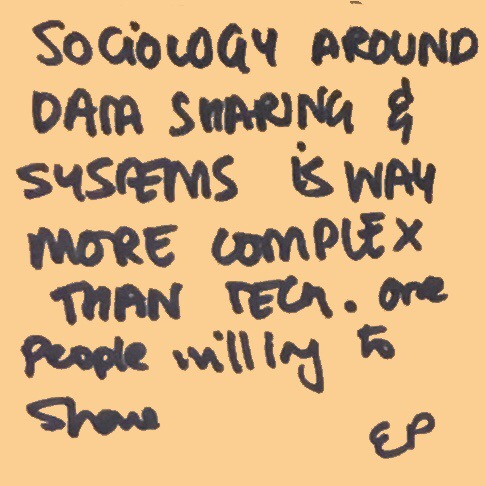 SOCIOLOGY AROUND
DATA SHARING &
SYSTEMS is WAY
MORE COMPLEX
THAN TECH. are
people willing to
share
EP